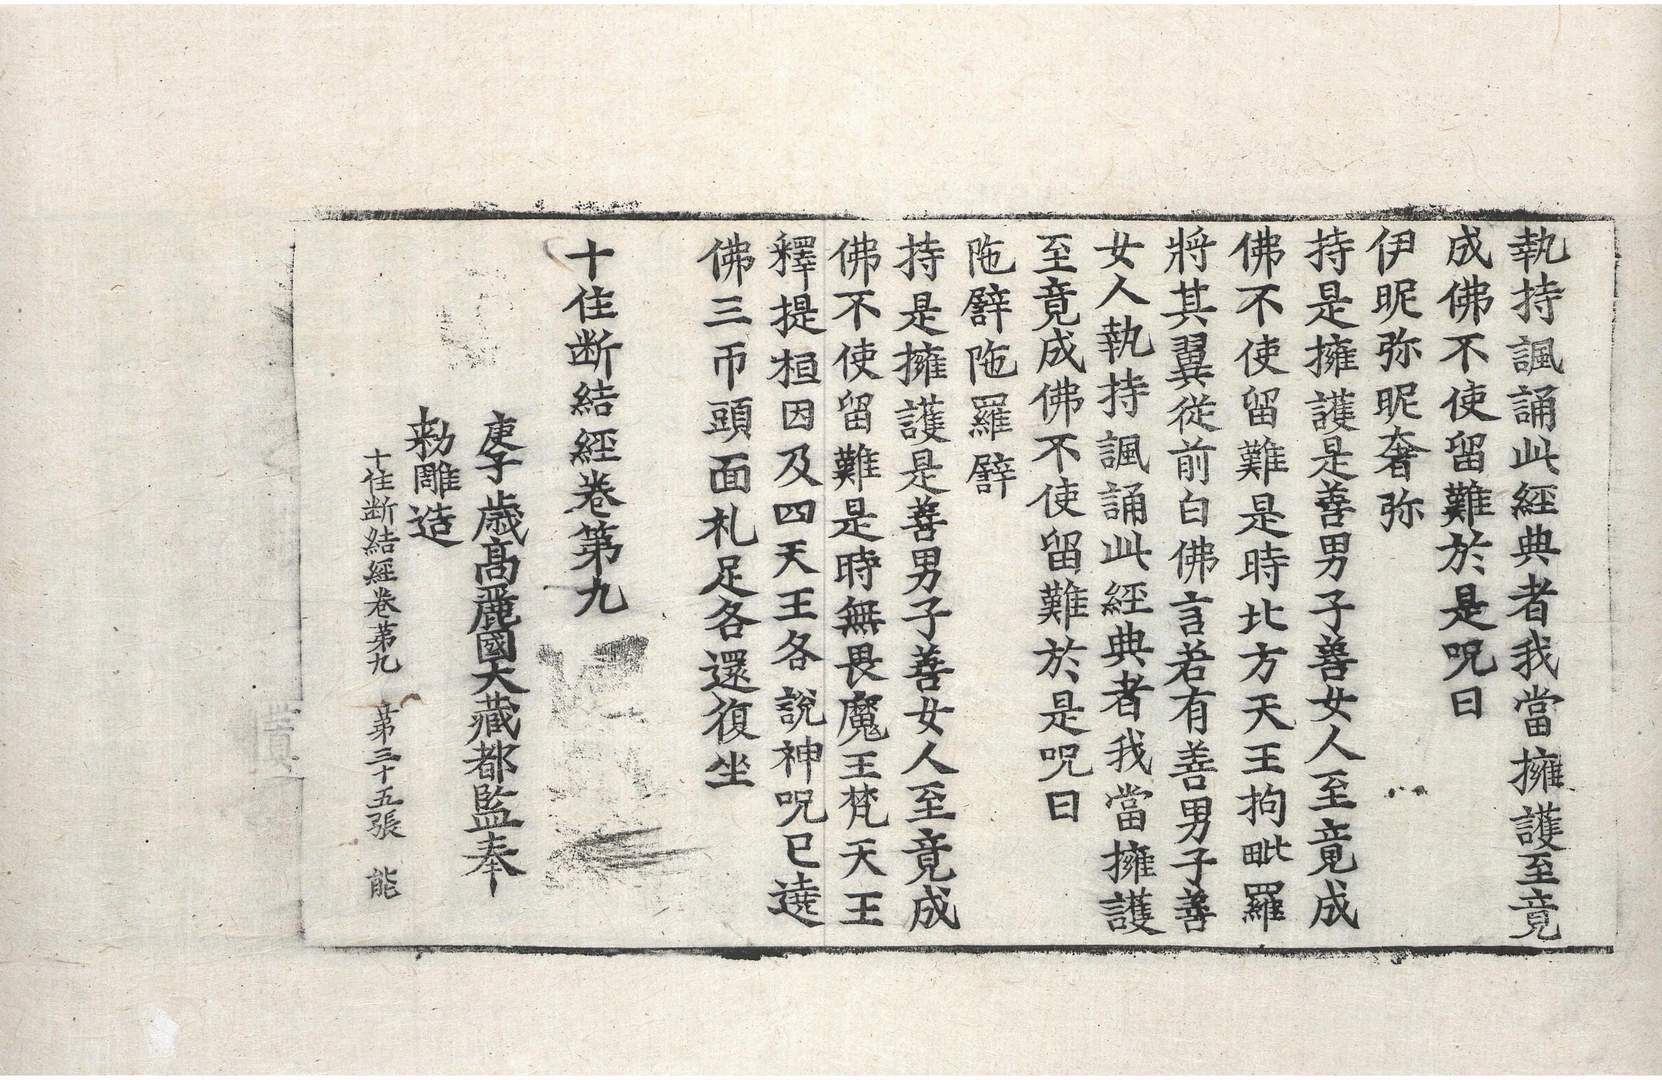 執持諷誦此經典者我當擁護至竟
成佛不使留難於是呪曰
伊昵弥昵奢弥
持是擁護是善男子善女人至竟成
佛不使留難是時北方天王拘毗羅
將其翼從前白佛言若有善男子善
女人執持諷誦此經典者我當擁護
至竟成佛不使留難於是呪曰
陁䤧陁羅䤧
持是擁護是善男子善女人至竟成
佛不使留難是時無畏魔王梵天王
釋提桓因及四天王各說神呪已遶
佛三帀頭面礼足各還復坐
十住断結經卷第九
庚子歳髙麗國大藏都監奉
勑雕造
十住断結經卷第九 第三十五張 能